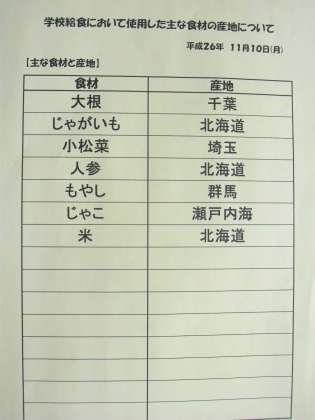 学校給食において使用した主な食材の産地について
平成26年 11月10日(月)
【主な食材と産地】
食材 産地
大根 千葉
じゃがいも 北海道
小松菜 埼玉
人参 北海道
もやし 群馬
じゃこ 瀬戸内海
米 北海道